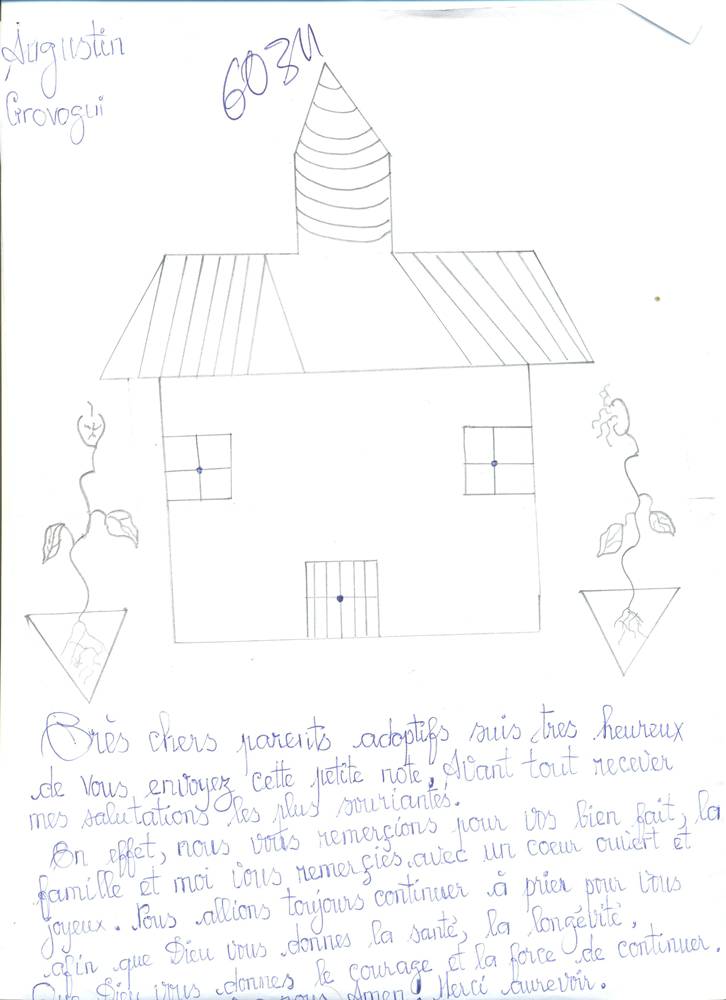 Augustin
Grovogui
6034
Très chers parents adoptifs suis tres heureux
de vous envoyez cette petite note, Avant tout recever
mes salutations les plus souriantés.
En effet, nous vous remerçions pour vos bien fait, la
famille et moi vous remerçiés avec un coeur ouvert et
joyeux. Nous allions toujours continuer à prier pour vous
afin que Dieu vous donnes la santé, la longévité,
Que Dieu vous donnes le courage et la force de continuer.
nous Amen! Merci aurevoir.